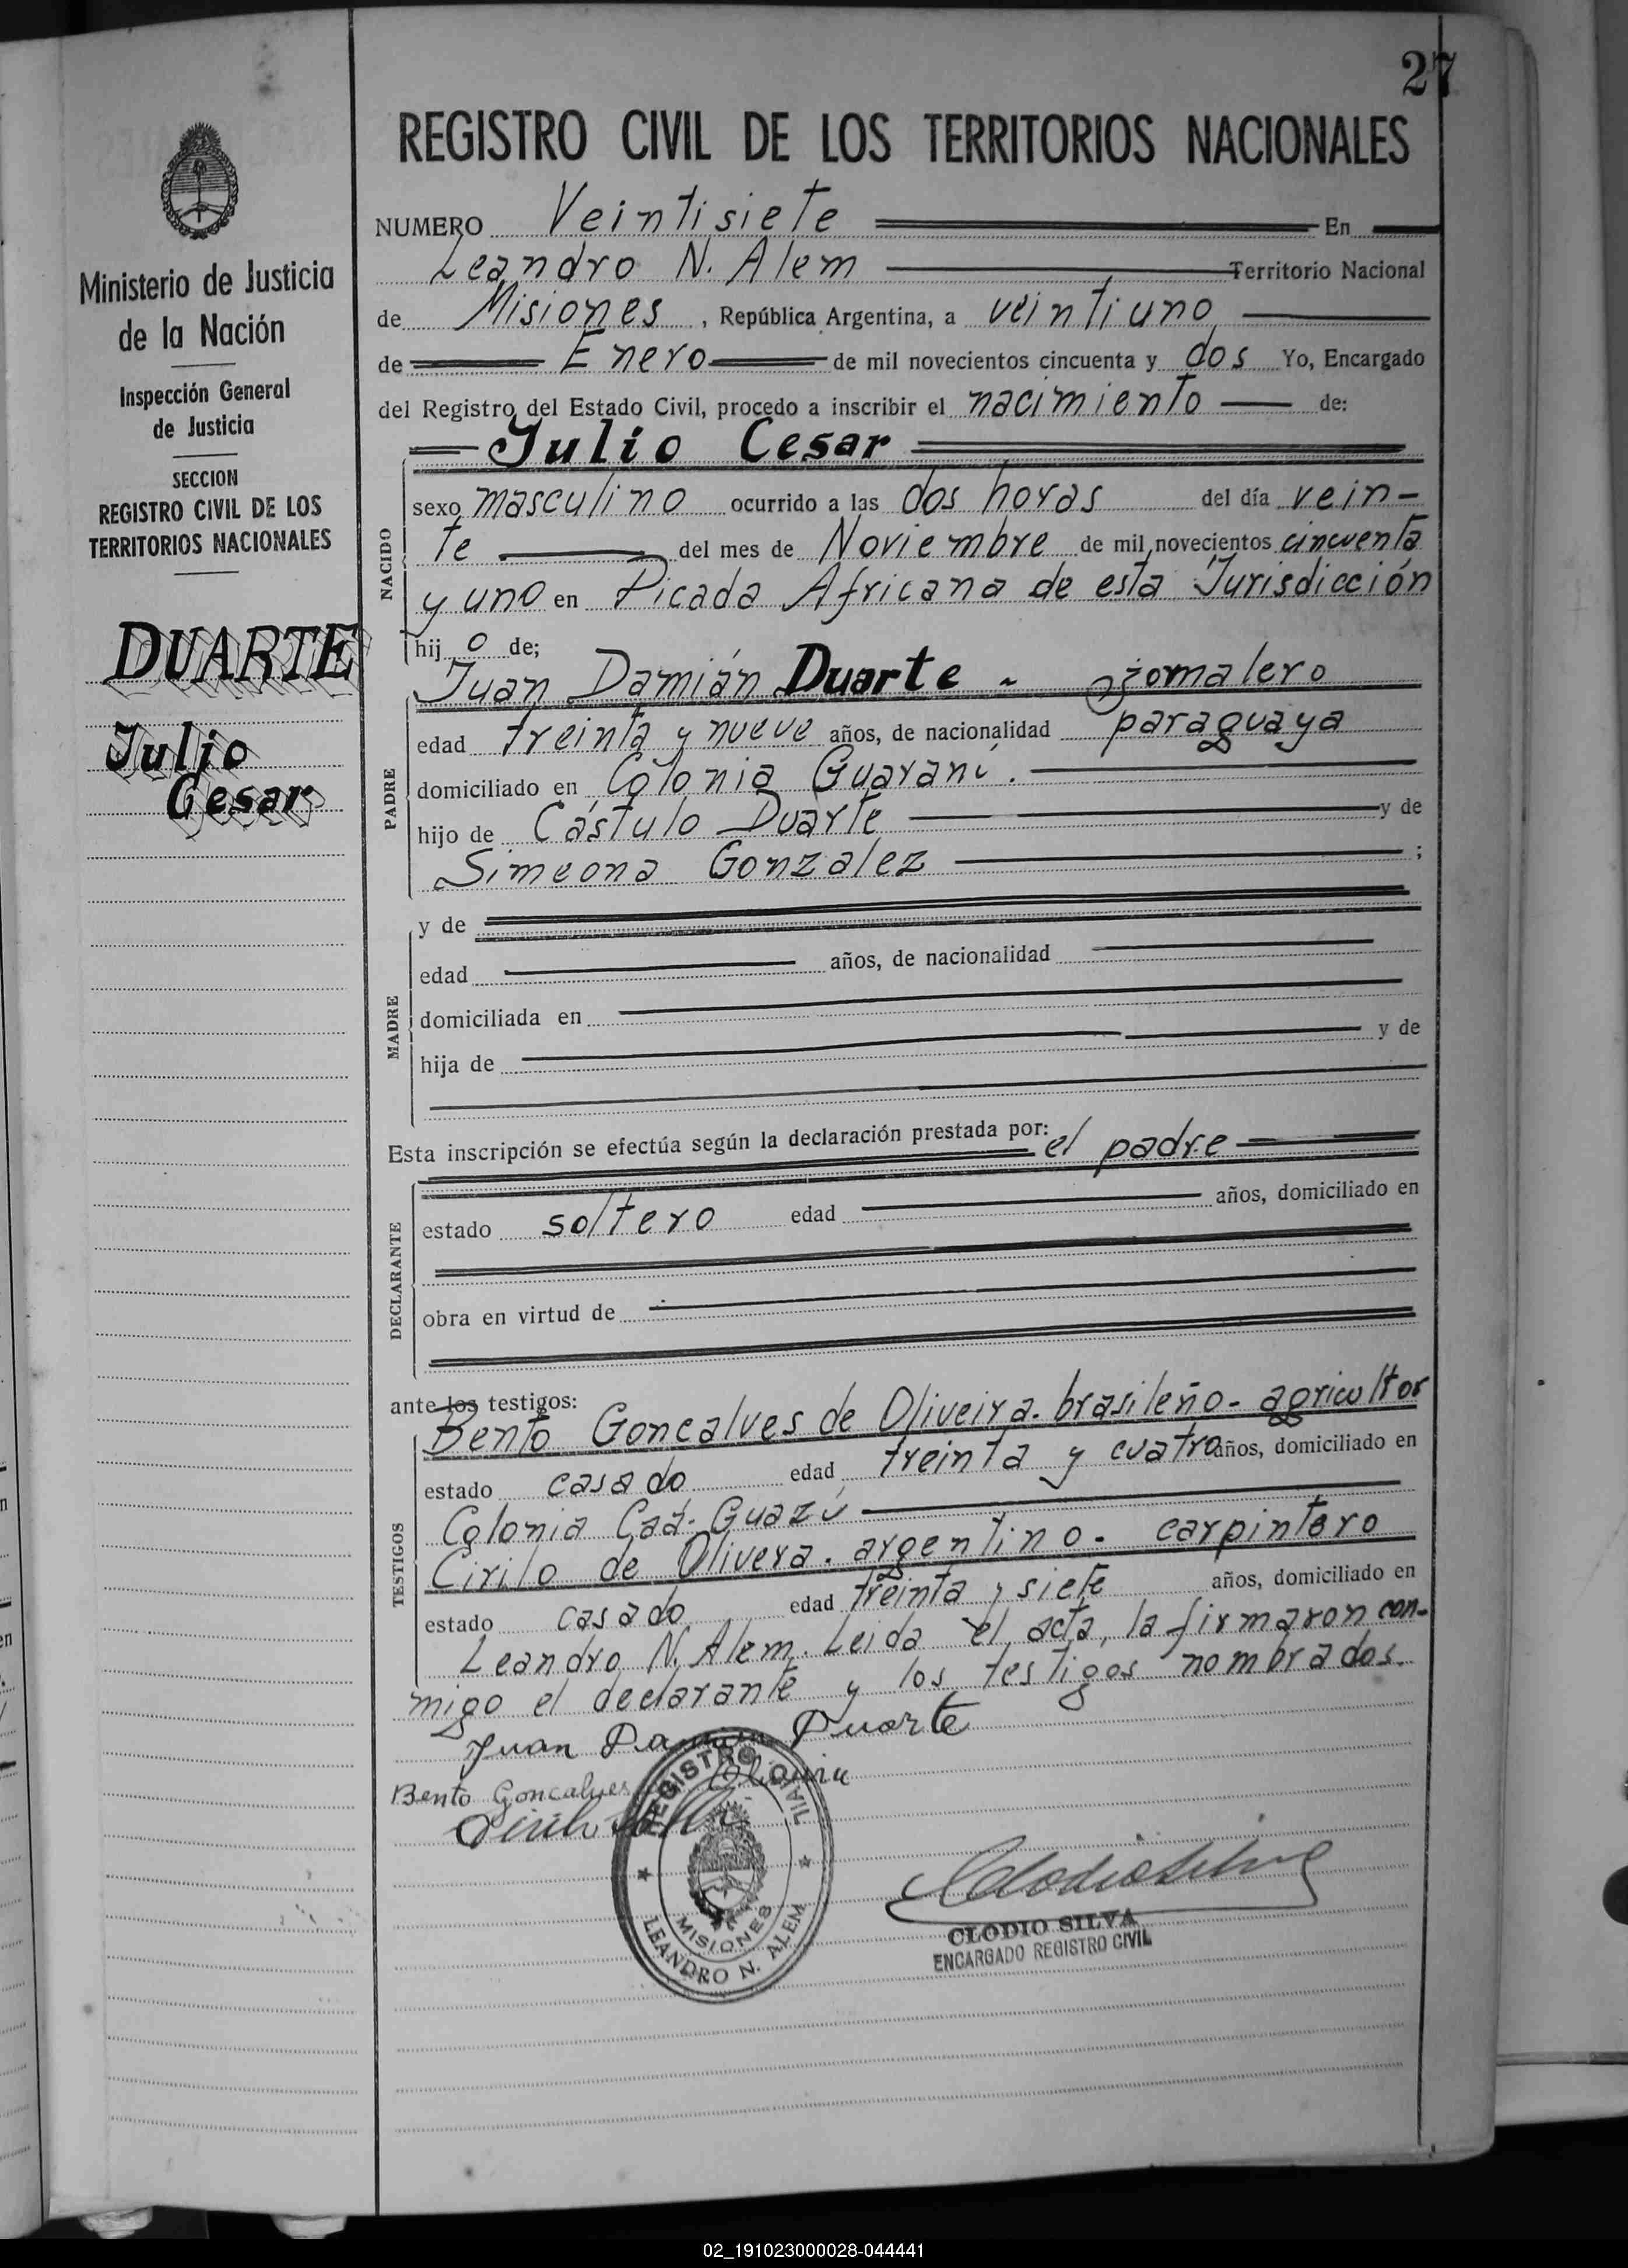 27
REGISTRO CIVIL DE LOS TERRITORIOS NACIONALES
Ministerio de Justicia
de la Nación
Inspección General
de Justicia
SECCION
REGISTRO CIVIL DE LOS
TERRITORIOS NACIONALES
DUARTE
Julio
Cesar
NUMERO Veintisiete En
Leandro N. Alem Territorio Nacional
de Misiones, República Argentina, a veintiuno
de Enero de mil novecientos cincuenta y dos Yo, Encargado
del Registro del Estado Civil, procedo a inscribir el nacimiento de:
Julio Cesar
NACIDO
sexo masculino ocurrido a las dos horas del día vein-
te del mes de Noviembre de mil novecientos cincuenta
y uno en Picada Africana de esta Jurisdicción
hijo de;
Juan Damián Duarte - jornalero
PADRE
edad treinta y nueve años, de nacionalidad paraguaya
domiciliado en Colonia Guaraní.
hijo de Cástulo Duarte y de
Simeona Gonzalez ;
y de
MADRE
edad años, de nacionalidad
domiciliada en
hija de y de
Esta inscripción se efectúa según la declaración prestada por: el padre
DECLARANTE
estado soltero edad años, domiciliado en
obra en virtud de
ante los testigos:
Bento Goncalves de Oliveira. brasileño - agricultor
TESTIGOS
estado casado edad treinta y cuatro años, domiciliado en
Colonia Caá-Guazú
Cirilo de Olivera. argentino - carpintero
estado casado edad treinta y siete años, domiciliado en
Leandro N. Alem. Leida el acta, la firmaron con-
migo el declarante y los testigos nombrados.
Juan Damián Duarte
Bento Goncalves Oliveira
Cirilo
REGISTRO CIVIL
MISIONES
LEANDRO N. ALEM
Clodio Silva
CLODIO SILVA
ENCARGADO REGISTRO CIVIL
02_191023000028-044441